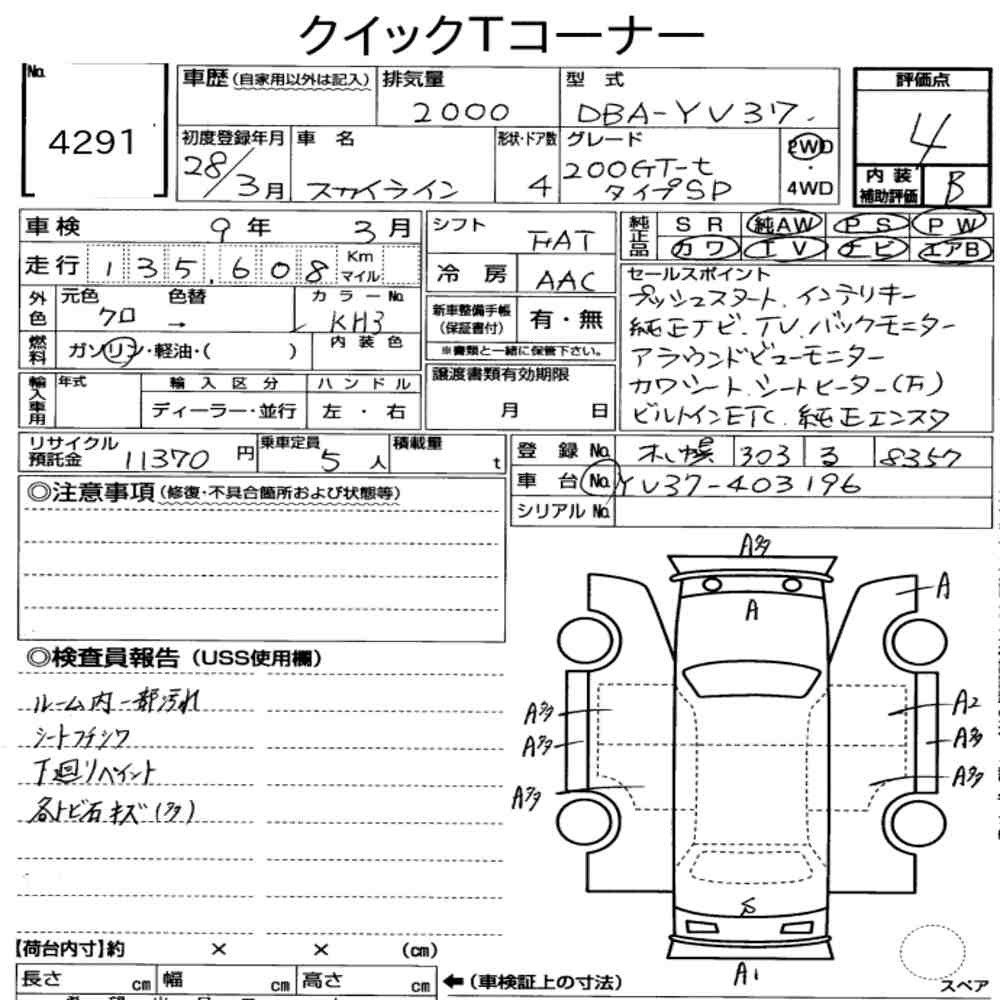 クイックTコーナー
No. 4291
車歴（自家用以外は記入）
排気量 2000
型式 DBA-YV37
評価点 4
内装補助評価 B
初度登録年月 28/3月
車名 スカイライン
形状・ドア数 4
グレード 200GT-t タイプSP
2WD・4WD
車検 9年 3月
走行 135,608 Km マイル
外色 元色 クロ 色替 →
カラーNo. KH3
燃料 ガソリン・軽油・( )
内装色
輸入車用 年式 輸入区分 ハンドル
ディーラー・並行 左・右
シフト FAT
冷房 AAC
新車整備手帳（保証書付） 有・無
※書類と一緒に保管下さい。
譲渡書類有効期限
月 日
純正品 SR 純AW PS PW
カワ TV ナビ エアB
セールスポイント
プッシュスタート、インテリキー
純正ナビ、TV、バックモニター
アラウンドビューモニター
カワシート、シートヒーター(万)
ビルトインETC、純正エンスタ
リサイクル預託金 11370円
乗車定員 5人
積載量 t
登録No. 札幌 303 る 8357
車台No. YV37-403196
シリアルNo.
◎注意事項（修復・不具合箇所および状態等）
◎検査員報告（USS使用欄）
ルーム内一部汚れ
シートフチシワ
下廻リペイント
各トビ石キズ(多)
A多
A
A
A多 A2
A多 A多
A多 A多
S
A1
【荷台内寸】約 × × (cm)
長さ cm 幅 cm 高さ cm
←（車検証上の寸法）
スペア